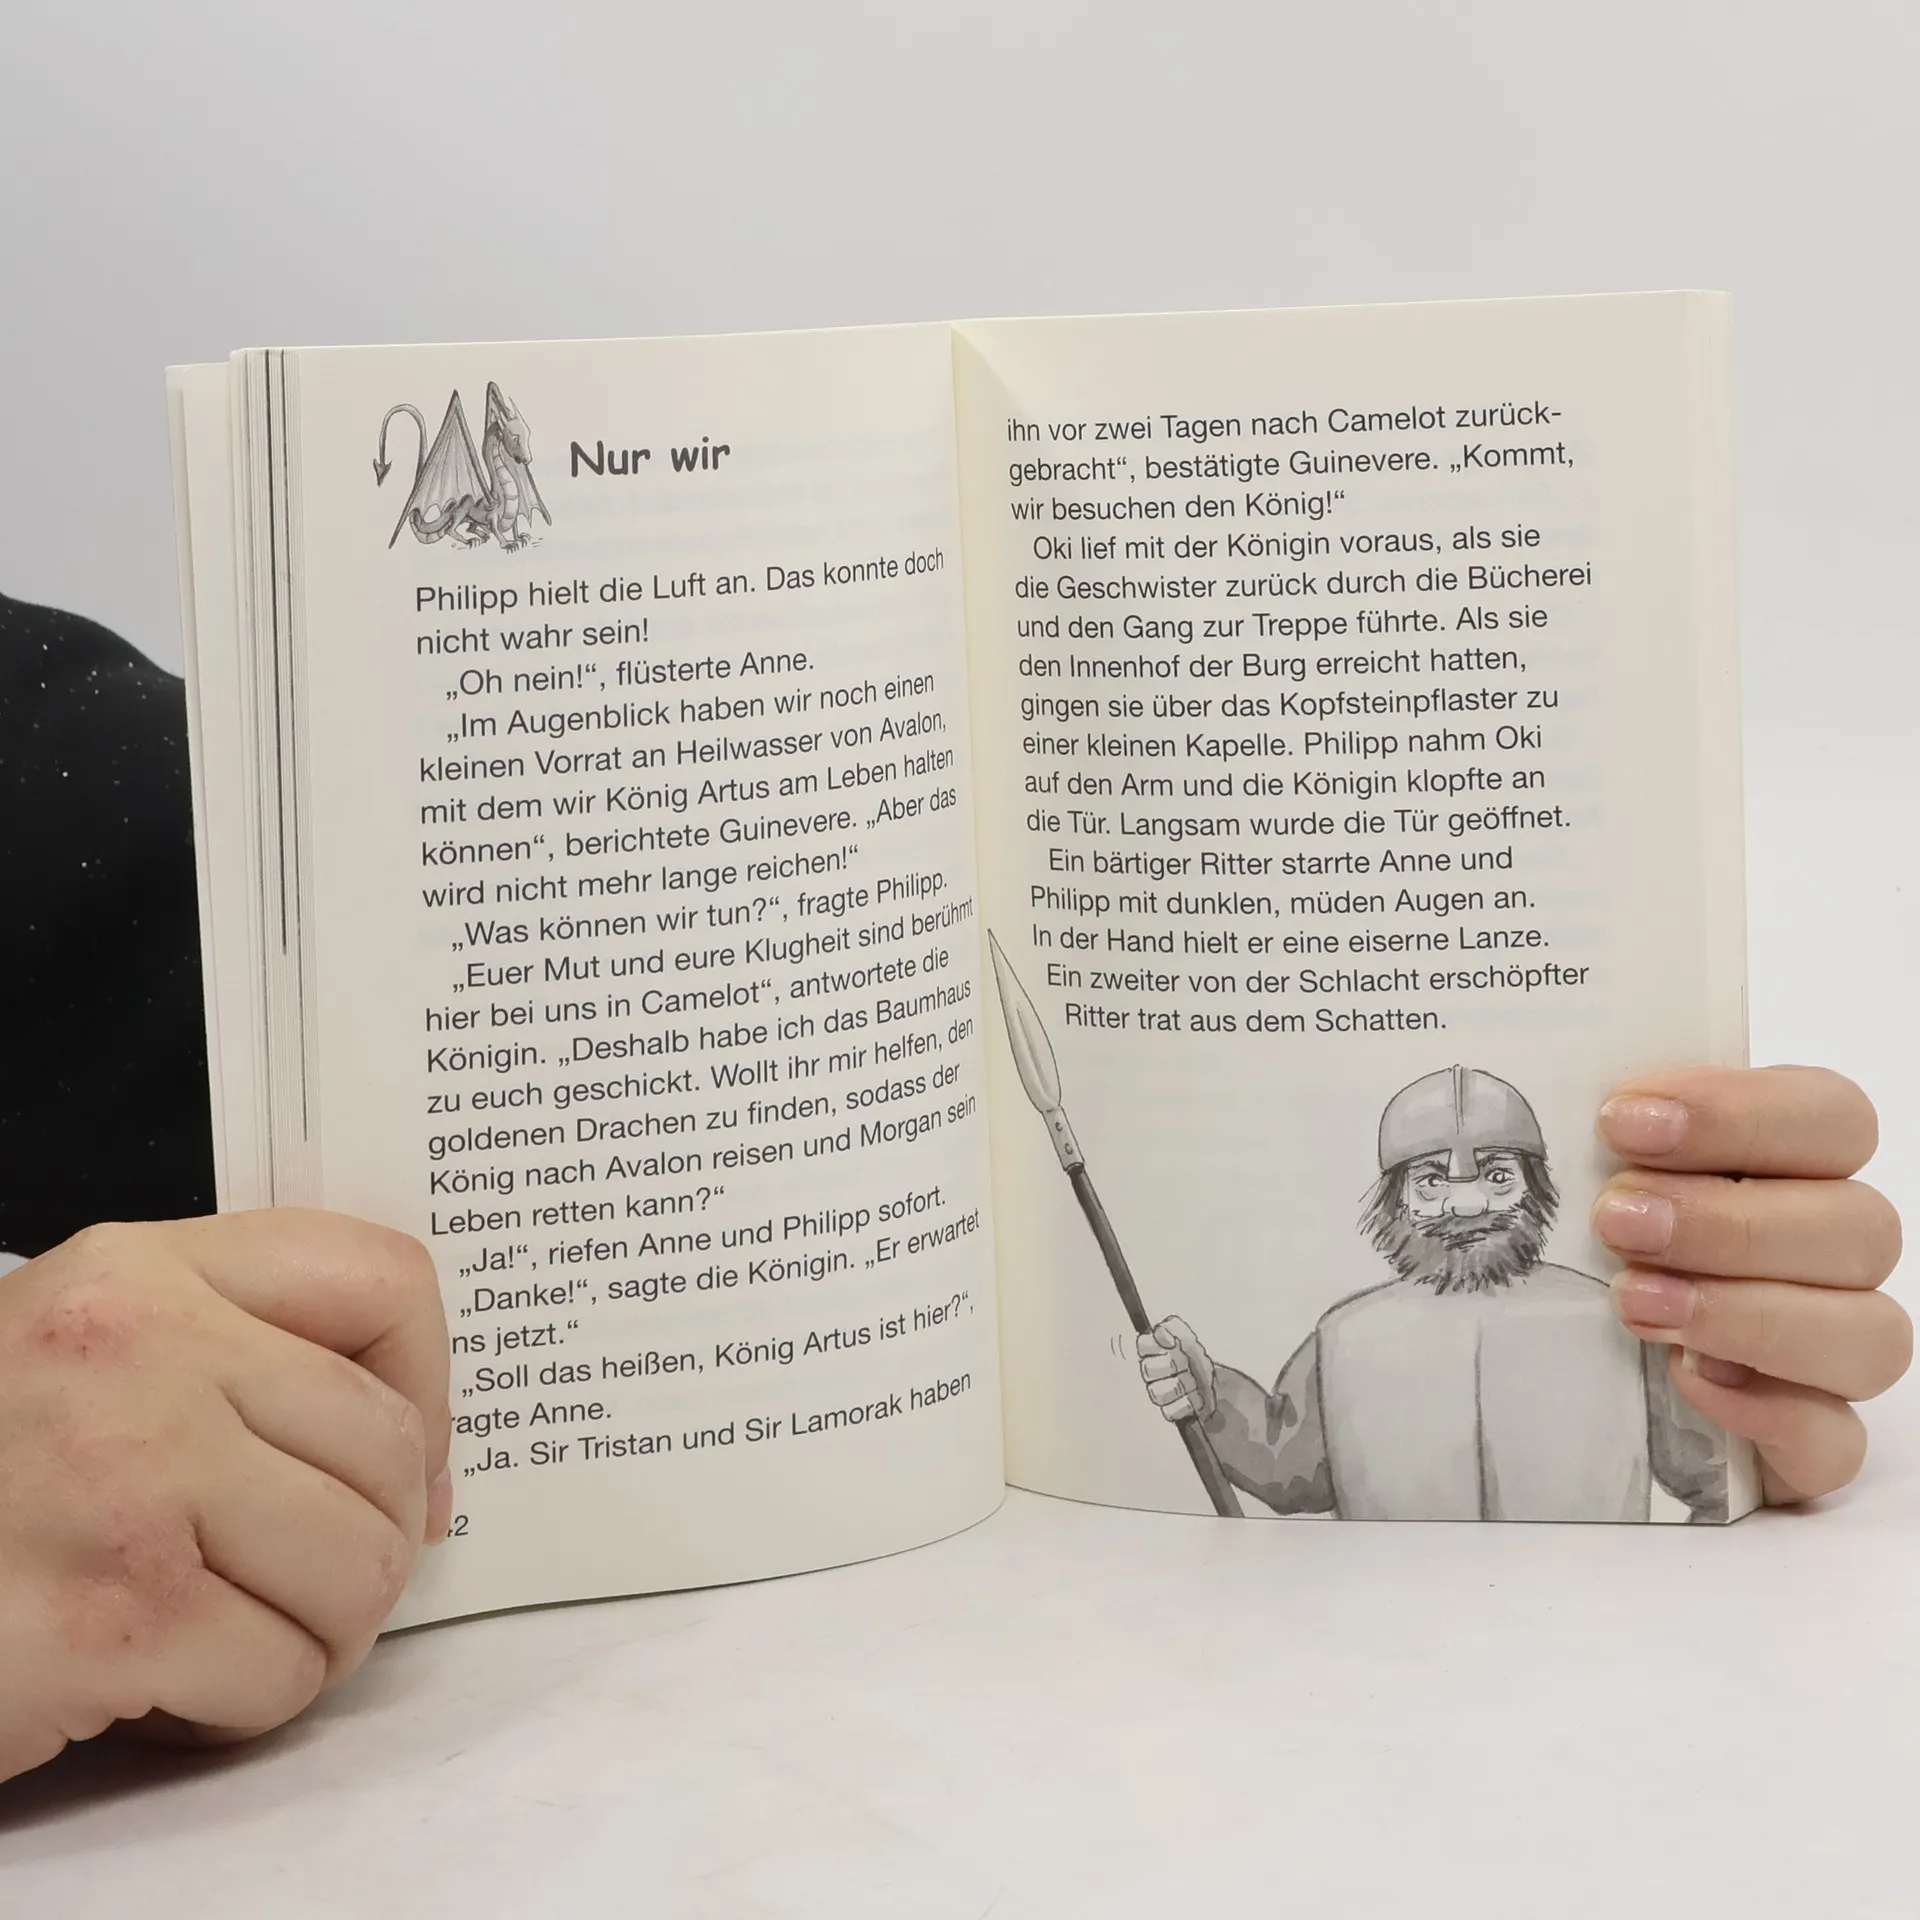 Nur wir
Philipp hielt die Luft an. Das konnte doch
nicht wahr sein!
„Oh nein!“, flüsterte Anne.
„Im Augenblick haben wir noch einen
kleinen Vorrat an Heilwasser von Avalon,
mit dem wir König Artus am Leben halten
können“, berichtete Guinevere. „Aber das
wird nicht mehr lange reichen!“
„Was können wir tun?“, fragte Philipp.
„Euer Mut und eure Klugheit sind berühmt
hier bei uns in Camelot“, antwortete die
Königin. „Deshalb habe ich das Baumhaus
zu euch geschickt. Wollt ihr mir helfen, den
goldenen Drachen zu finden, sodass der
König nach Avalon reisen und Morgan sein
Leben retten kann?“
„Ja!“, riefen Anne und Philipp sofort.
„Danke!“, sagte die Königin. „Er erwartet
ns jetzt.“
„Soll das heißen, König Artus ist hier?“,
ragte Anne.
„Ja. Sir Tristan und Sir Lamorak haben
2
ihn vor zwei Tagen nach Camelot zurück-
gebracht“, bestätigte Guinevere. „Kommt,
wir besuchen den König!“
Oki lief mit der Königin voraus, als sie
die Geschwister zurück durch die Bücherei
und den Gang zur Treppe führte. Als sie
den Innenhof der Burg erreicht hatten,
gingen sie über das Kopfsteinpflaster zu
einer kleinen Kapelle. Philipp nahm Oki
auf den Arm und die Königin klopfte an
die Tür. Langsam wurde die Tür geöffnet.
Ein bärtiger Ritter starrte Anne und
Philipp mit dunklen, müden Augen an.
In der Hand hielt er eine eiserne Lanze.
Ein zweiter von der Schlacht erschöpfter
Ritter trat aus dem Schatten.